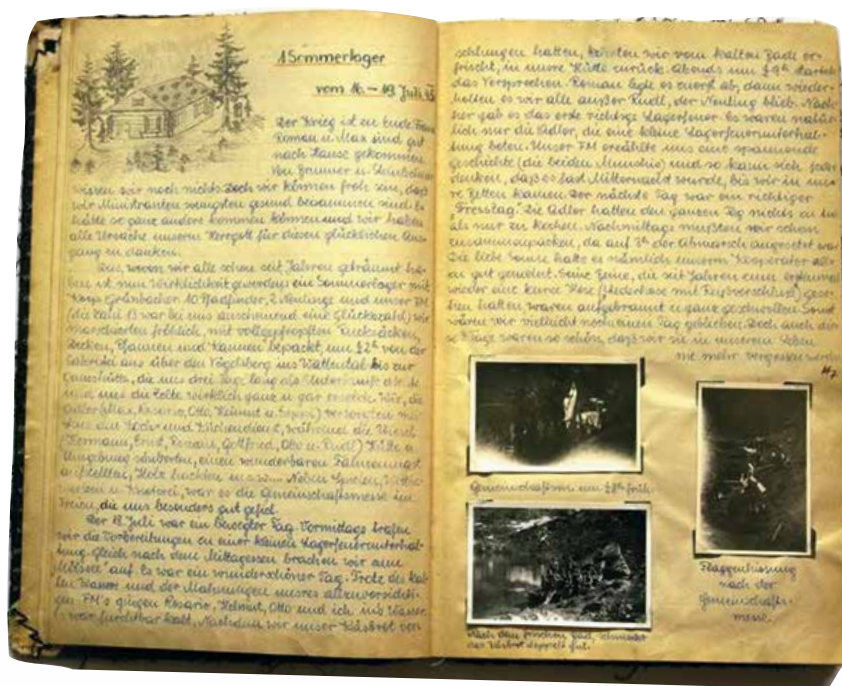 1. Sommerlager
vom 16. – 19. Juli 45
Der Krieg ist zu Ende
Roman u. Max sind gut
nach Hause gekommen
Von Brunner u.
wissen wir noch nichts. Doch wir können froh sein, daß
wir Ministranten wengsten gesund beisammen sind. Es
hätte so ganz anders kommen können und wir haben
alle Ursache unserm Herrgott für diesen glücklichen Aus-
gang zu danken.
Das, wovon wir alle schon seit Jahren geträumt ha-
ben ist nun Wirklichkeit geworden: ein Sommerlager mit
Koop. Grünbacher. 10 Pfadfinder, 2 Neulinge und unser FM
(die Zahl 13 war bei uns anscheinend eine Glückszahl) wir
marschierten fröhlich, mit vollgepfropften Rucksäcken,
Decken, Pfannen und Kannen bepackt, um ½2ʰ von der
aus über den Vögelsberg ins Wattental bis zur
, die uns drei Tag lang als Unterkunft diente
und uns die Zelte wirklich ganz u. gar ersetzte. Wir, die
Adler (Max, Rosario, Otto, Helmut u. ) versorgten
den Koch- und Küchendienst, während die Wiesel
(Hermann, Ernst, Roman, Gottfried, Otto u. Rudl) Hütte u.
Umgebung säuberten, einen wunderbaren Fahnenmast
aufstellten, Holz hackten u.s.w... Neben Spielen,
und , war es die Gemeinschaftsmesse im
Freien, die uns besonders gut gefiel.
Der 18. Juli war ein bewegter Tag. Vormittags trafen
wir die Vorbereitungen zu einer kleinen Lagerfeuerunterhal-
tung. Gleich nach dem Mittagessen brachen wir zum
auf. Es war ein wunderschöner Tag. Trotz des kal-
ten Wassers und der Mahnungen unsres allervorsichti-
gen FM's gingen Rosario, Helmut, Otto und ich ins Wasser.
Es war furchtbar kalt. Nachdem wir unser Käsbrot ver-
schlungen hatten, kehrten wir vom kalten Bade er-
frischt, in unsre Hütte zurück. Abends um ½9ʰ
das Versprechen. Roman legte es zuerst ab, dann wieder-
holten es wir alle außer Rudl, der Neuling blieb. Nach-
her gab es das erste richtige Lagerfeuer. Es waren natür-
lich nur die Adler, die eine kleine Lagerfeuerunterhal-
tung boten. Unser FM erzählte uns eine spannende
Geschichte (die beiden ) und so kann sich jeder
denken, daß es fast Mitternacht wurde, bis wir in uns-
re Betten kamen. Der nächste Tag war ein richtiger
"Fresstag". Die Adler hatten den ganzen Tag nichts zu tun
als nur zu kochen. Nachmittags mußten wir schon
zusammenpacken, da auf 3ʰ der Abmarsch angesetzt war.
Die liebe Sonne hatte es nämlich unserm Kooperator all-
zu gut gemeint. Seine Beine, die seit Jahren zum erstenmal
wieder eine kurze Hose (Lederhose mit Reißverschluß) gese-
hen hatten waren aufgebrannt u. ganz geschwollen. Sonst
wären wir vielleicht noch einen Tag geblieben. Doch auch die-
se 3 Tage waren so schön, daß wir sie in unserem Leben
nie mehr vergessen werden
Gemeinschaftsm. um ½8ʰ früh.
Nach dem frischen Bad, schmeckt
das Käsbrot doppelt gut.
Flaggenhissung
nach der
Gemeinschafts-
messe.